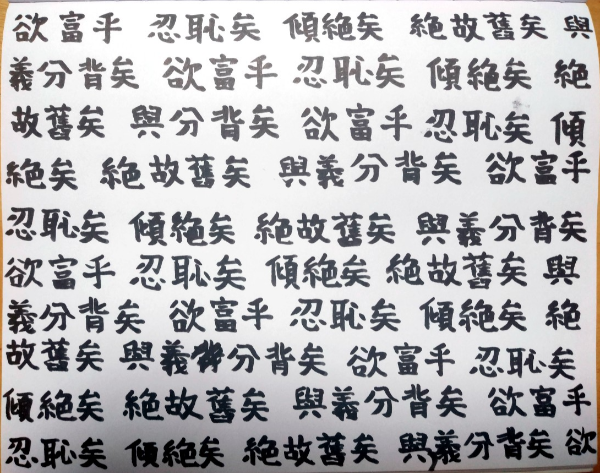 欲富乎 忍恥矣 傾絶矣 絶故舊矣 與
義分背矣 欲富乎 忍恥矣 傾絶矣 絶
故舊矣 與分背矣 欲富乎 忍恥矣 傾
絶矣 絶故舊矣 與義分背矣 欲富乎
忍恥矣 傾絶矣 絶故舊矣 與義分背矣
欲富乎 忍恥矣 傾絶矣 絶故舊矣 與
義分背矣 欲富乎 忍恥矣 傾絶矣 絶
故舊矣 與義分背矣 欲富乎 忍恥矣
傾絶矣 絶故舊矣 與義分背矣 欲富乎
忍恥矣 傾絶矣 絶故舊矣 與義分背矣 欲